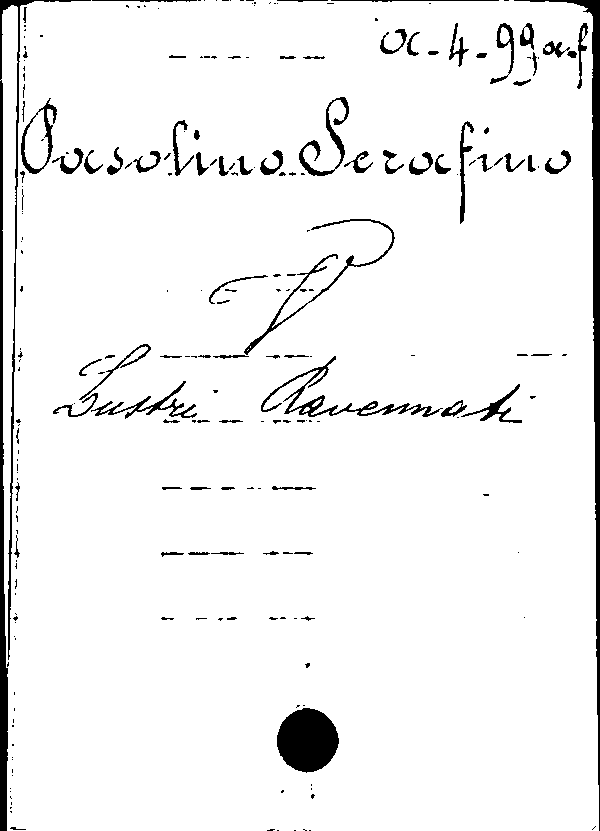 α-4-99 a-f
Pasolino Serafino
V
Lustri Ravennati